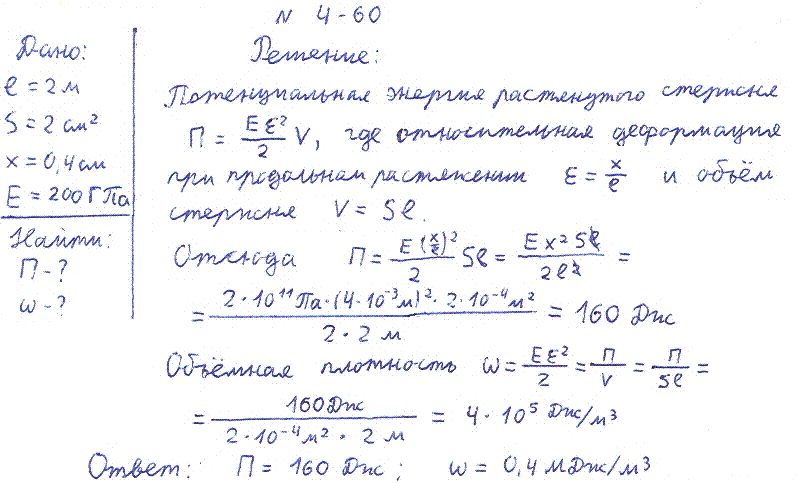 N 4-60
Дано:
ℓ = 2 м
S = 2 см²
x = 0,4 см
E = 200 ГПа
Найти:
П - ?
ω - ?
Решение:
Потенциальная энергия растянутого стержня
П = Eε²/2 V, где относительная деформация
при продольном растяжении ε = x/ℓ и объём
стержня V = Sℓ.
Отсюда П = E(x/ℓ)²/2 Sℓ = Ex²Sℓ/2ℓ² =
= 2·10¹¹Па·(4·10⁻³м)²·2·10⁻⁴м²/2·2 м = 160 Дж
Объёмная плотность ω = Eε²/2 = П/V = П/Sℓ =
= 160Дж/2·10⁻⁴м²·2 м = 4·10⁵ Дж/м³
Ответ: П = 160 Дж; ω = 0,4 МДж/м³